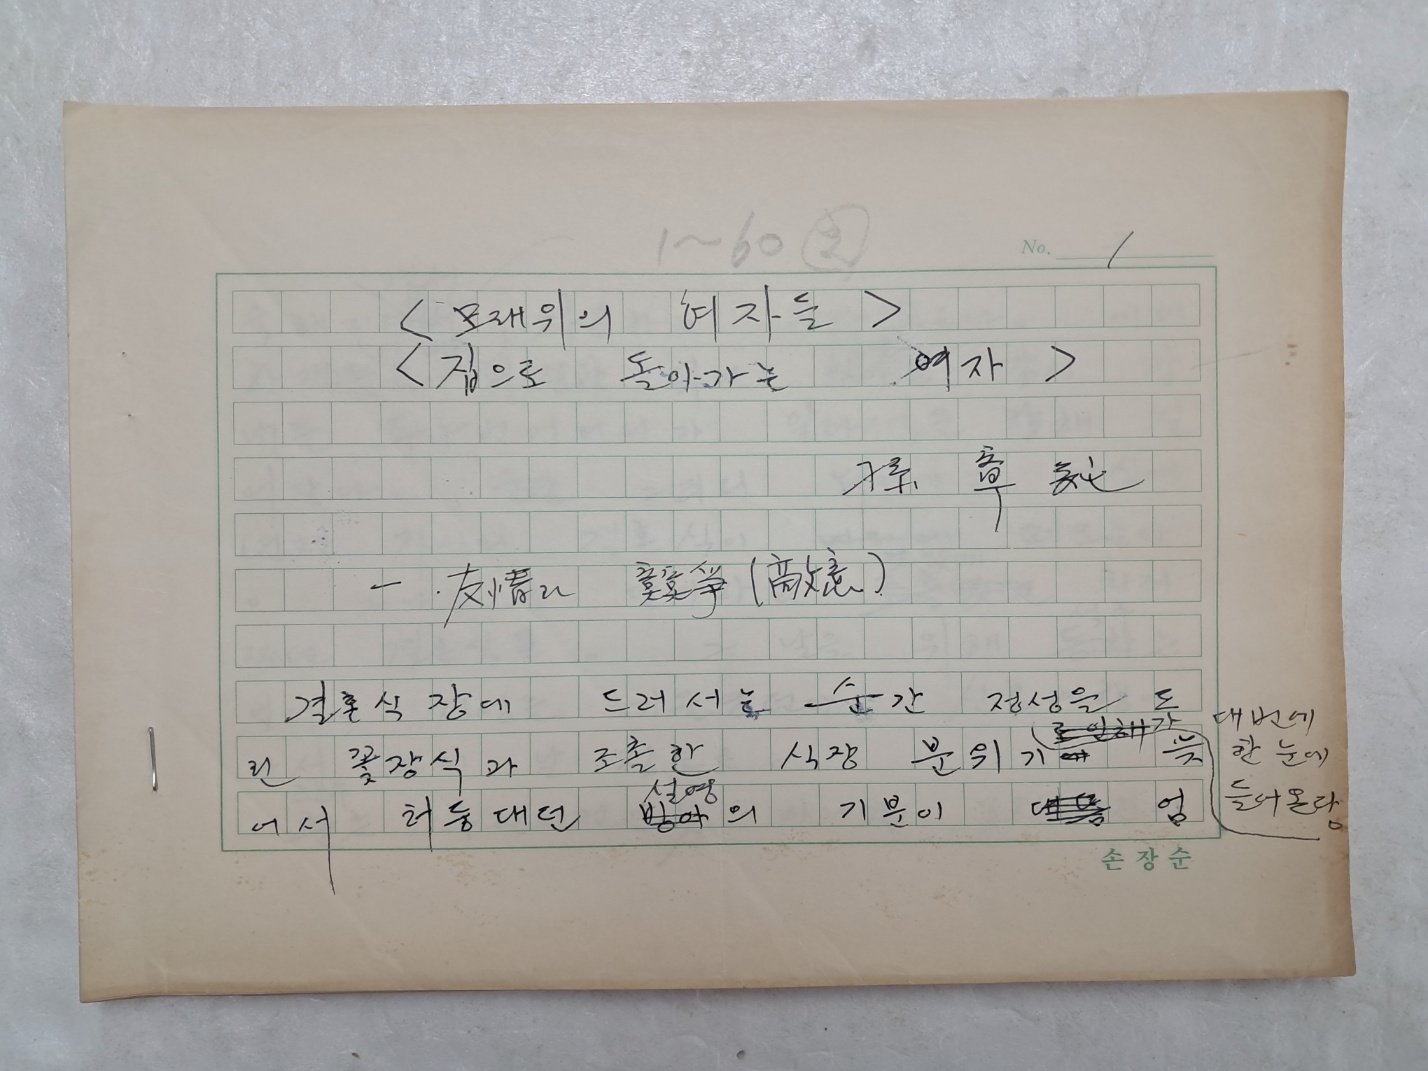 1~60
No. 1
<모래위의 여자들>
<집으로 돌아가는 여자>
孫 章 純
一. 友情과 競爭 (敵意)
결혼식장에 드러서는 순간 정성을 드
린 꽃장식과 조촐한 식장 분위기가
대번에
한 눈에
들어온다
설영
어서 허둥대던 의 기분이 엄
손장순